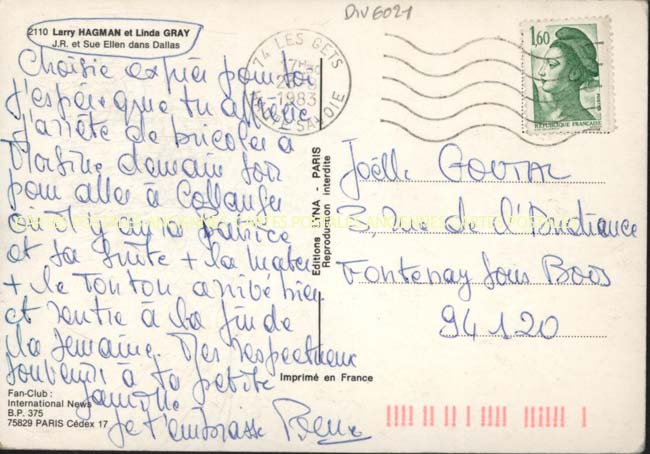 DIV6021
2110 Larry HAGMAN et Linda GRAY
J.R. et Sue Ellen dans Dallas
Choisie exprès pour toi
j'espère que tu apprécies
J'arrête de bricoler à
Morzine demain soir
pour aller à Collanges
où il y aura Patrice
et sa suite + la mater
+ le Tonton arrivé hier
et rentre à la fin de
la semaine. Mes respectueux
souvenirs à ta petite
famille
Je t'embrasse
Fan-Club :
International News
B.P. 375
75829 PARIS Cédex 17
Editions LYNA - PARIS
Reproduction interdite
Imprimé en France
74 LES GETS
1983
HAUTE SAVOIE
1,60
REPUBLIQUE FRANCAISE
Joëlle GOUTAL
3, rue de l'
Fontenay sous Bois
94120
CARTES POSTALES ANCIENNES